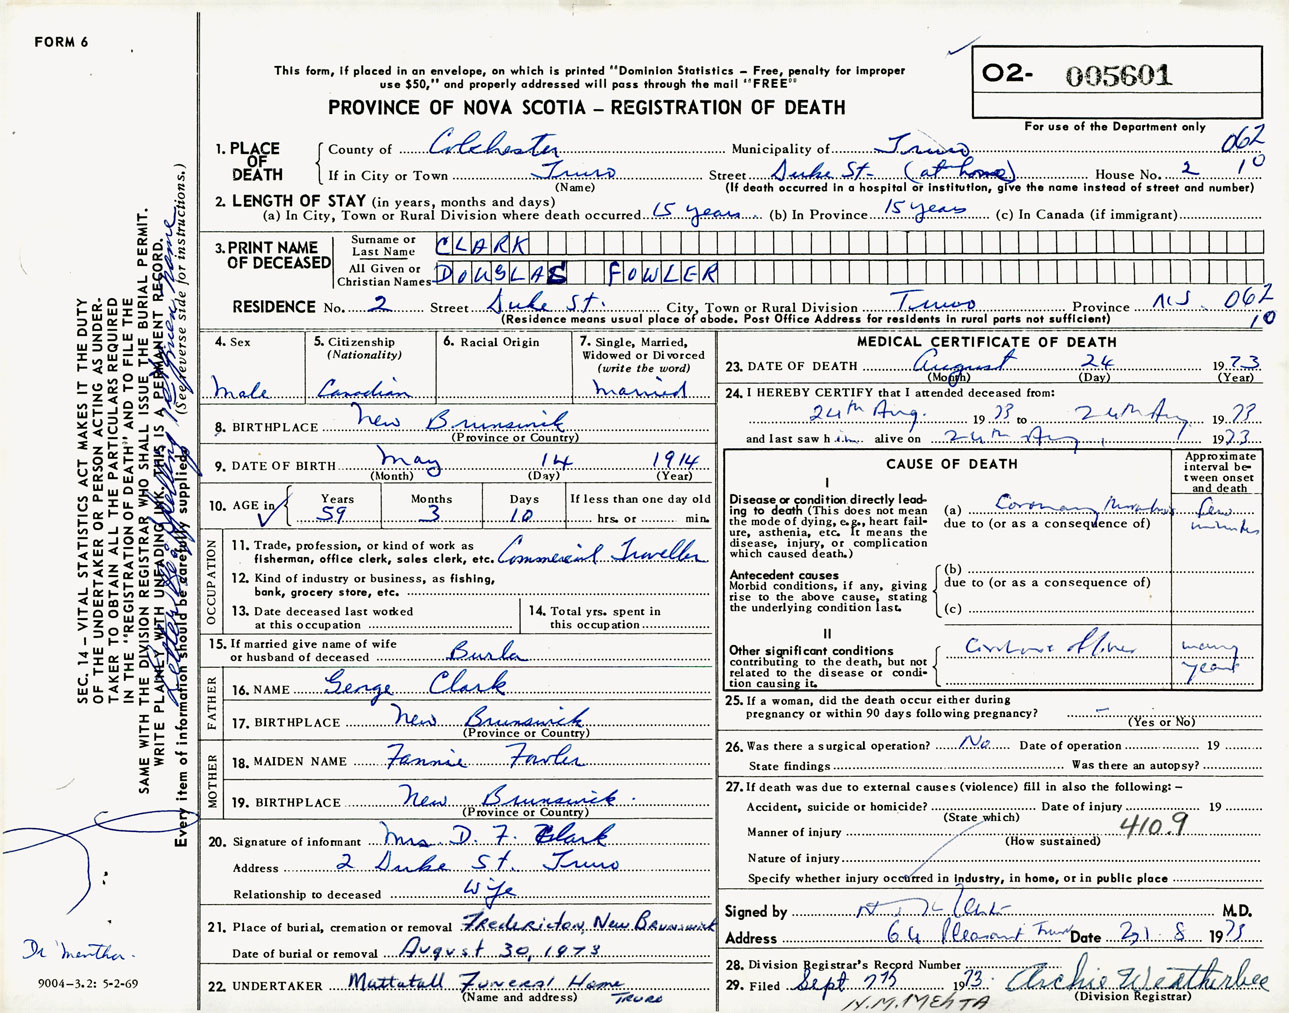 FORM 6
This form, if placed in an envelope, on which is printed "Dominion Statistics – Free, penalty for improper
use $50," and properly addressed will pass through the mail "FREE"
PROVINCE OF NOVA SCOTIA – REGISTRATION OF DEATH
O2- 005601
For use of the Department only
1. PLACE OF DEATH
County of Colchester Municipality of Truro 062
If in City or Town Truro Street Duke St. (at home) House No. 2 10
(Name) (If death occurred in a hospital or institution, give the name instead of street and number)
2. LENGTH OF STAY (in years, months and days)
(a) In City, Town or Rural Division where death occurred 15 years (b) In Province 15 years (c) In Canada (if immigrant)
3. PRINT NAME OF DECEASED
Surname or Last Name CLARK
All Given or Christian Names DOUGLAS FOWLER
RESIDENCE No. 2 Street Duke St. City, Town or Rural Division Truro Province N.S. 062
(Residence means usual place of abode. Post Office Address for residents in rural parts not sufficient) 10
4. Sex
Male
5. Citizenship
(Nationality)
Canadian
6. Racial Origin
7. Single, Married,
Widowed or Divorced
(write the word)
married
8. BIRTHPLACE New Brunswick
(Province or Country)
9. DATE OF BIRTH May 14 1914
(Month) (Day) (Year)
10. AGE in
Years Months Days If less than one day old
59 3 10 hrs. or min.
OCCUPATION
11. Trade, profession, or kind of work as
fisherman, office clerk, sales clerk, etc. Commercial Traveller
12. Kind of industry or business, as fishing,
bank, grocery store, etc.
13. Date deceased last worked
at this occupation
14. Total yrs. spent in
this occupation
15. If married give name of wife
or husband of deceased Burla
FATHER
16. NAME George Clark
17. BIRTHPLACE New Brunswick
(Province or Country)
MOTHER
18. MAIDEN NAME Fannie Fowler
19. BIRTHPLACE New Brunswick.
(Province or Country)
20. Signature of informant Mrs D. F. Clark
Address 2 Duke St. Truro
Relationship to deceased Wife
21. Place of burial, cremation or removal Fredericton, New Brunswick
Date of burial or removal August 30, 1973
22. UNDERTAKER Mattatall Funeral Home
(Name and address) TRURO
MEDICAL CERTIFICATE OF DEATH
23. DATE OF DEATH August 24 1973
(Month) (Day) (Year)
24. I HEREBY CERTIFY that I attended deceased from:
24th Aug. 1973 to 24th Aug 1973
and last saw him alive on 24th Aug, 1973
CAUSE OF DEATH
Approximate
interval be-
tween onset
and death
I
Disease or condition directly lead-
ing to death (This does not mean
the mode of dying, e.g., heart fail-
ure, asthenia, etc. It means the
disease, injury, or complication
which caused death.)
(a) Coronary
due to (or as a consequence of)
few
minutes
Antecedent causes
Morbid conditions, if any, giving
rise to the above cause, stating
the underlying condition last.
(b)
due to (or as a consequence of)
(c)
II
Other significant conditions
contributing to the death, but not
related to the disease or condi-
tion causing it.
of liver
many
years
25. If a woman, did the death occur either during
pregnancy or within 90 days following pregnancy? –
(Yes or No)
26. Was there a surgical operation? No Date of operation 19
State findings Was there an autopsy?
27. If death was due to external causes (violence) fill in also the following: –
Accident, suicide or homicide? Date of injury 19
(State which)
Manner of injury 410.9
(How sustained)
Nature of injury
Specify whether injury occurred in industry, in home, or in public place
Signed by M.D.
Address 64 Pleasant Truro Date 8 1973
28. Division Registrar's Record Number
29. Filed Sept 1973. Archie Weatherbee
(Division Registrar)
N.M. MEHTA
SEC. 14 – VITAL STATISTICS ACT MAKES IT THE DUTY
OF THE UNDERTAKER OR PERSON ACTING AS UNDER-
TAKER TO OBTAIN ALL THE PARTICULARS REQUIRED
IN THE "REGISTRATION OF DEATH" AND TO FILE THE
SAME WITH THE DIVISION REGISTRAR WHO SHALL ISSUE THE BURIAL PERMIT.
WRITE PLAINLY WITH UNFADING INK. THIS IS A PERMANENT RECORD.
Every item of information should be carefully supplied. (See reverse side for instructions.)
Dr
9004-3.2: 5-2-69